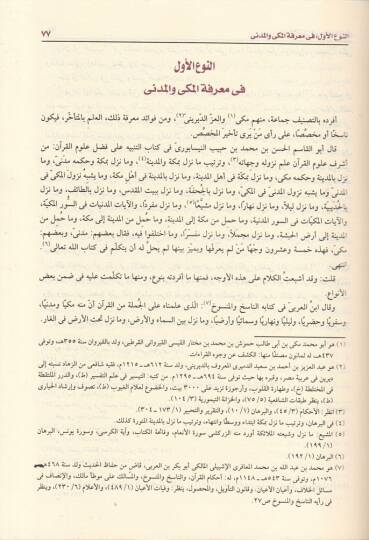 النوع الأول: فى معرفة المكى والمدنى ٧٧
النوع الأول
فى معرفة المكى والمدنى
أفرده بالتصنيف جماعة، منهم مكى(١) والعزّ الدّيرينى(٢)، ومن فوائد معرفة ذلك، العلم بالمتأخّر، فيكون
ناسخًا أو مخصّصًا، على رأى مَنْ يرى تأخير المخصّص.
قال أبو القاسم الحسن بن محمد بن حبيب النيسابورىّ فى كتاب التنبيه على فضل علوم القرآن: من
أشرف علوم القرآن علم نزوله وجهاته(٣)، وترتيب ما نزل بمكة والمدينة(٤)، وما نزل بمكة وحكمه مدنىّ، وما
نزل بالمدينة وحكمه مكى، وما نزل بمكة فى أهل المدينة، وما نزل بالمدينة فى أهل مكة، وما يشبه نزول المكىّ فى
المدنىّ وما يشبه نزول المدنىّ فى المكىّ، وما نزل بالجُحفة، وما نزل ببيت المقدس، وما نزل بالطائف، وما نزل
بالحُديبية، وما نزل ليلاً، وما نزل نهاراً، وما نزل مشيَّعًا(٥)، وما نزل مفردًا، والآيات المدنيات فى السور المكيّة،
والآيات المكيّات فى السور المدنية، وما حمل من مكة إلى المدينة، وما حُمل من المدينة إلى مكة، وما حمل من
المدينة إلى أرض الحبشة، وما نزل مجملاً، وما نزل مفسّرًا، وما اختلفوا فيه، فقال بعضهم: مدنىّ، وبعضهم:
مكىّ، فهذه خمسة وعشرون وجهًا مَنْ لم يعرفها ويميّز بينها لم يحلّ له أن يتكلّم فى كتاب الله تعالى(٦).
انتهى.
قلت: وقد أشبعتُ الكلام على هذه الأوجه، فمنها ما أفردته بنوع، ومنها ما تكلّمت عليه فى ضمن بعض
الأنواع.
وقال ابنُ العربى فى كتابه الناسخ والمنسوخ(٧): الّذى علمناه على الجُملة من القرآن أنّ منه مكيًّا ومدنيًا،
وسفريًا وحضريًا، وليليًا ونهاريًا وسمائيًا وأرضيًا، وما نزل بين السماء والأرض، وما نزل تحت الأرض فى الغار.
(١) هو أبو محمد مكى بن أبى طالب حموش بن محمد بن مختار القيسى القيروانى القرطبى، ولد بالقيروان سنة ٣٥٥هـ وتوفى
٤٣٧هـ، له ثمانون مصنفًا منها: الكشف عن وجوه القراءات.
(٢) هو عبد العزيز بن أحمد بن سعيد الدميرى المعروف بالديرينى، ولد سنة ٦١٢هـ ١٢١٥م، فقيه شافعى من الزهاد نسبته إلى
ديرين فى غربية مصر، وقبره بها حيث توفى سنة ٦٩٤هـ ١٢٩٥م. من كتبه: التيسير فى علم التفسير (ط)، والدرر الملتقطة
فى المختلطة (خ)، وطهارة القلوب، وأرجوزة تزيد على ٣٠٠٠ بيت، والخضوع لعلام الغيوب (ط)، تصوف وإرشاد الحيارى
(ط)، ينظر طبقات الشافعية (٧٥/٥)، والخزانة التيمورية (١٠٤/٣).
(٣) انظر: الأحكام (٤٥/٣)، والبرهان (١٠/١)، والتقرير والتحبير (١٧٣/١ – ٣٠٤).
(٤) فى البرهان، وترتيب ما نزل بمكة ابتداء ووسطًا وانتهاء، وترتيب ما نزل بالمدينة المنورة كذلك.
(٥) المشيع: ما نزل وشيعته الملائكة أورد منه الزركشى سورة الأنعام، وفاتحة الكتاب، وآية الكرسى، وسورة يونس، البرهان
(١٩٩/١)
(٦) البرهان (١٩٢/١).
(٧) هو محمد بن عبد الله بن محمد المعافرى الإشبيلى المالكى أبو بكر بن العربى، قاض من حفاظ الحديث ولد سنة ٤٦٨هـ
١٠٧٦م، وتوفى سنة ٥٤٣هـ ١١٤٨م، له: أحكام القرآن، والناسخ والمنسوخ، والمسالك على موطأ مالك، والإنصاف فى
مسائل الخلاف، وأعيان الأعيان، وقانون التأويل، والمحصول، ينظر: وفيات الأعيان (٤٨٩/١)، والأعلام (٢٣٠/٦)، وينظر
فى رأيه الناسخ والمنسوخ ص٢٧.